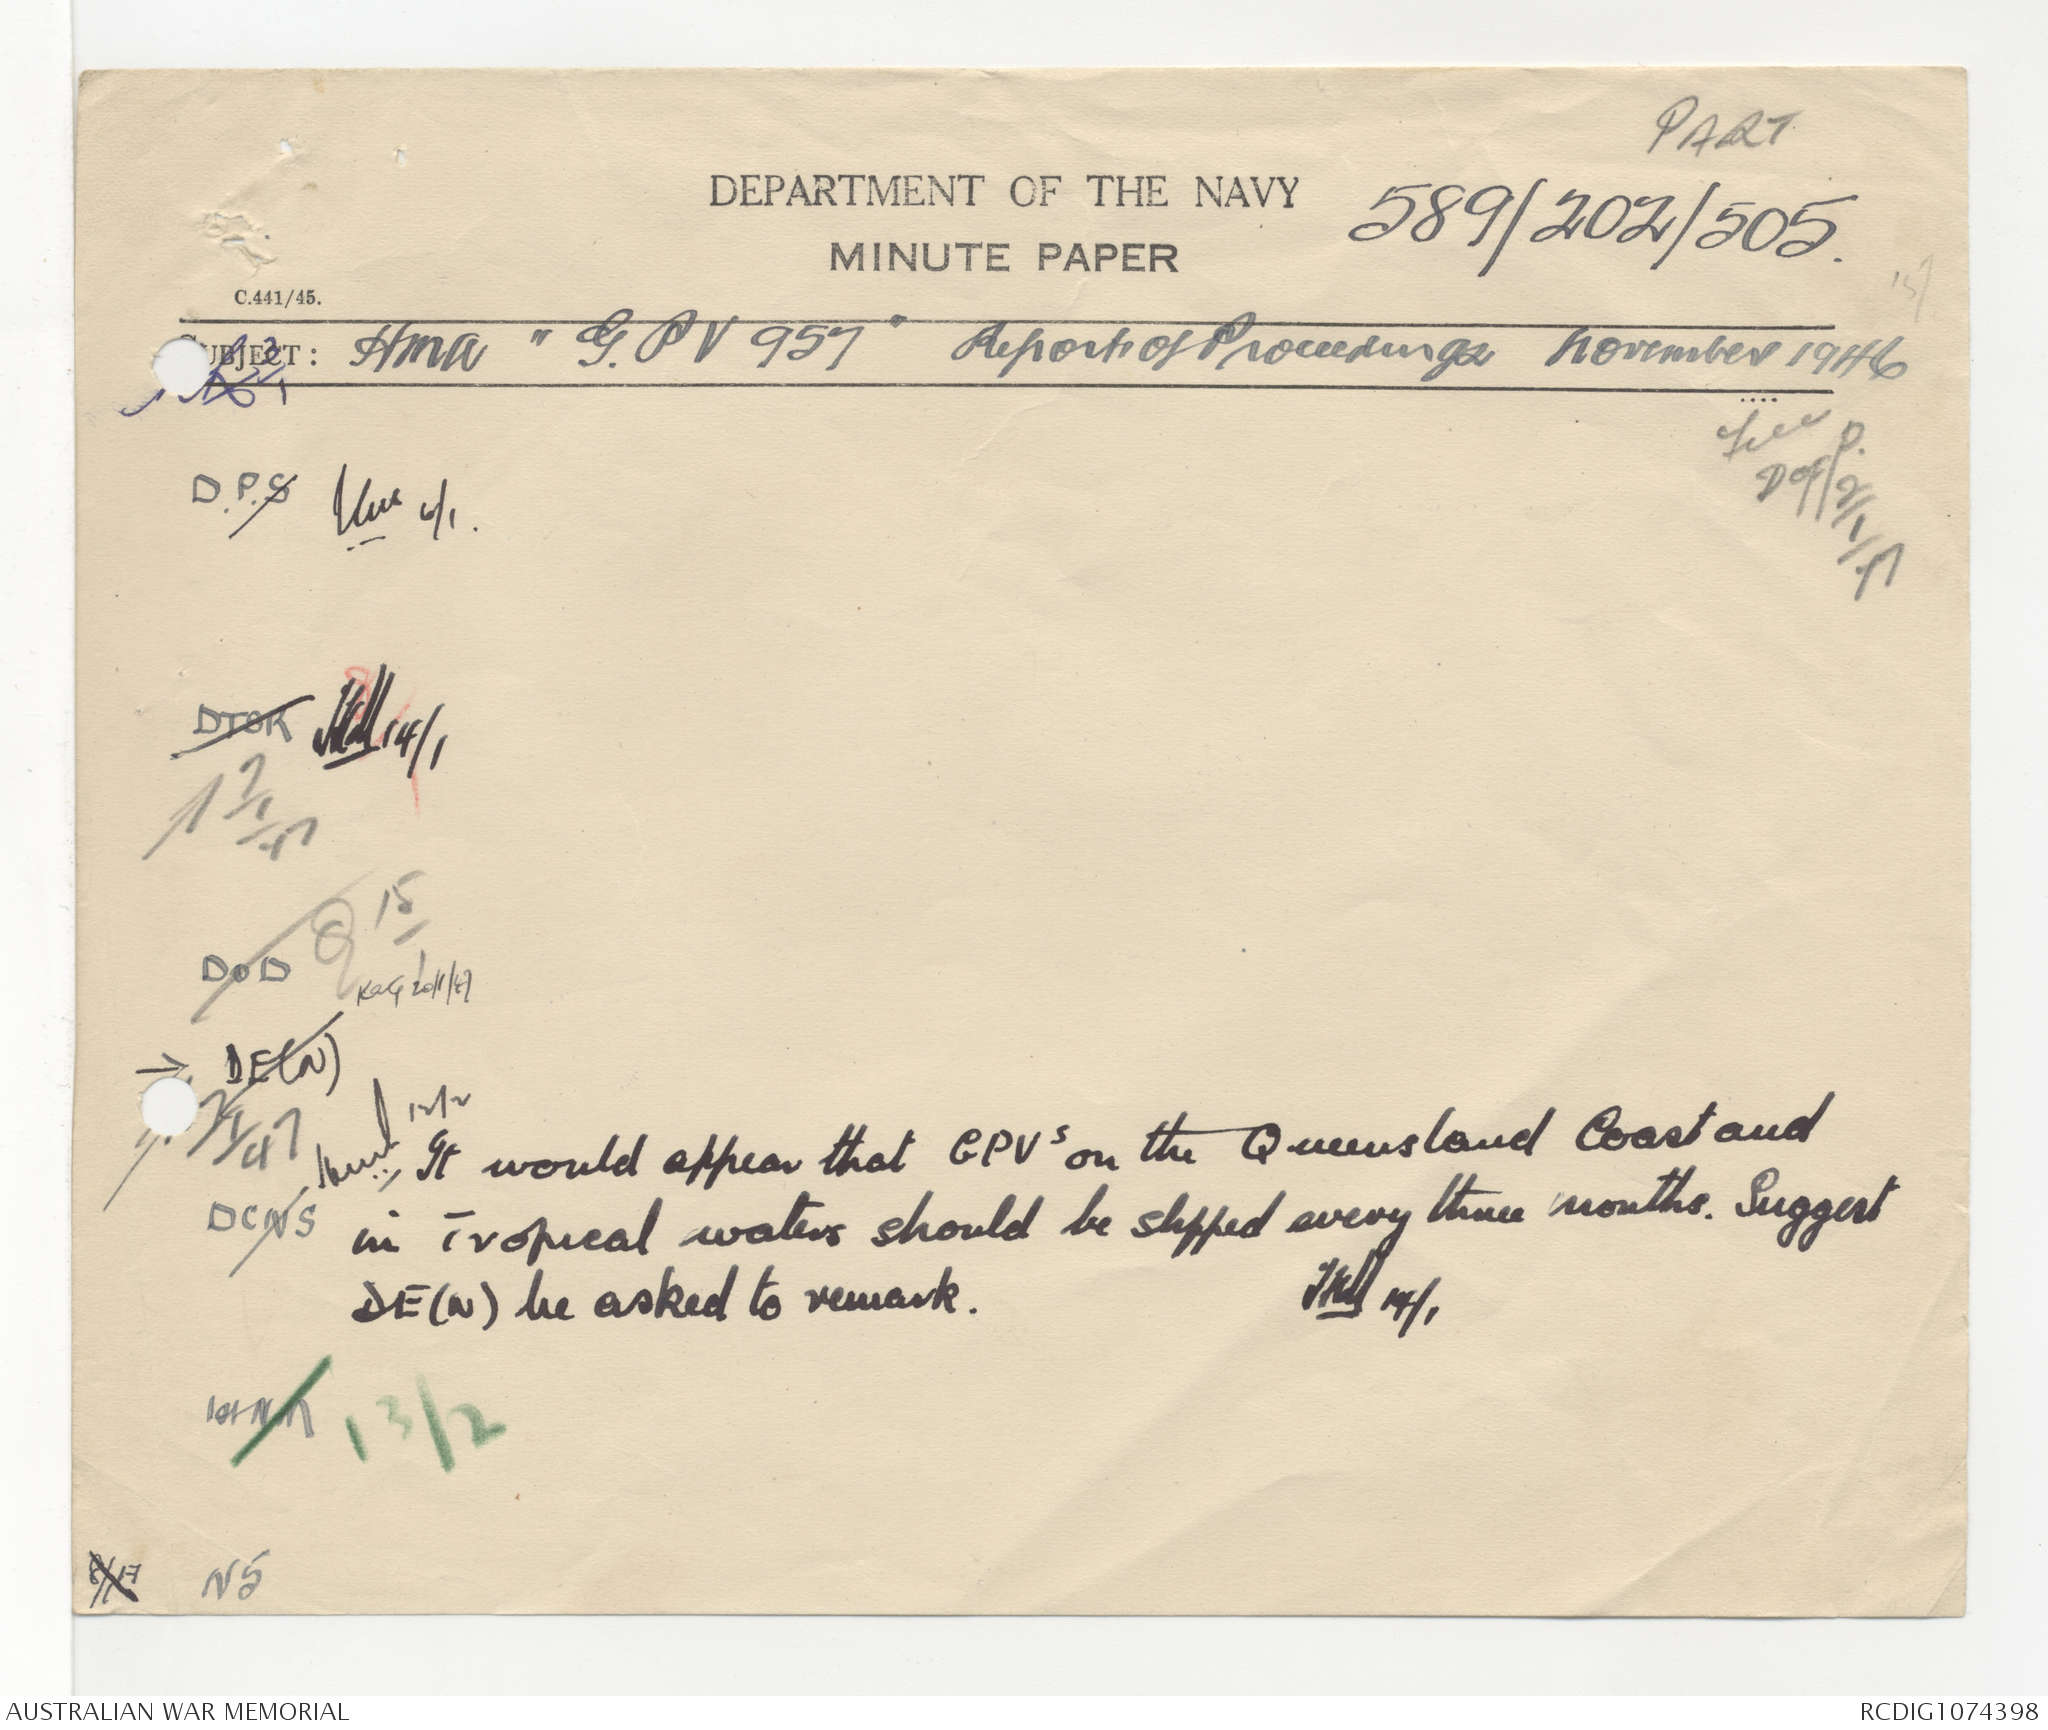 PART
DEPARTMENT OF THE NAVY
589/202/505.
MINUTE PAPER
C.441/45.
SUBJECT: HMA "G.P.V 957" Reports of Proceedings November 1946
D.P.S 6/1.
DTSR 14/1
17/1/47
DoD 15
20/1/47
→ DE(N)
12/2
It would appear that GPVs on the Queensland Coast and
DCNS
in Tropical waters should be slipped every three months. Suggest
DE(N) be asked to remark.
14/1
1st NM 13/2
NS
AUSTRALIAN WAR MEMORIAL
RCDIG1074398